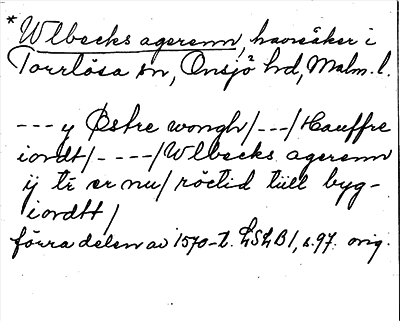 *Wlbecks agerenn, havreåker i
Torrlösa sn, Onsjö hd, Malm. l.
--- y Østre wongh/---/Hauffre
iordt/----/Wlbecks agerenn
ij tr̄ er nu/röctid tiill byg-
iordtt/
förra delen av 1570-t. LSLB1, s.97. orig.